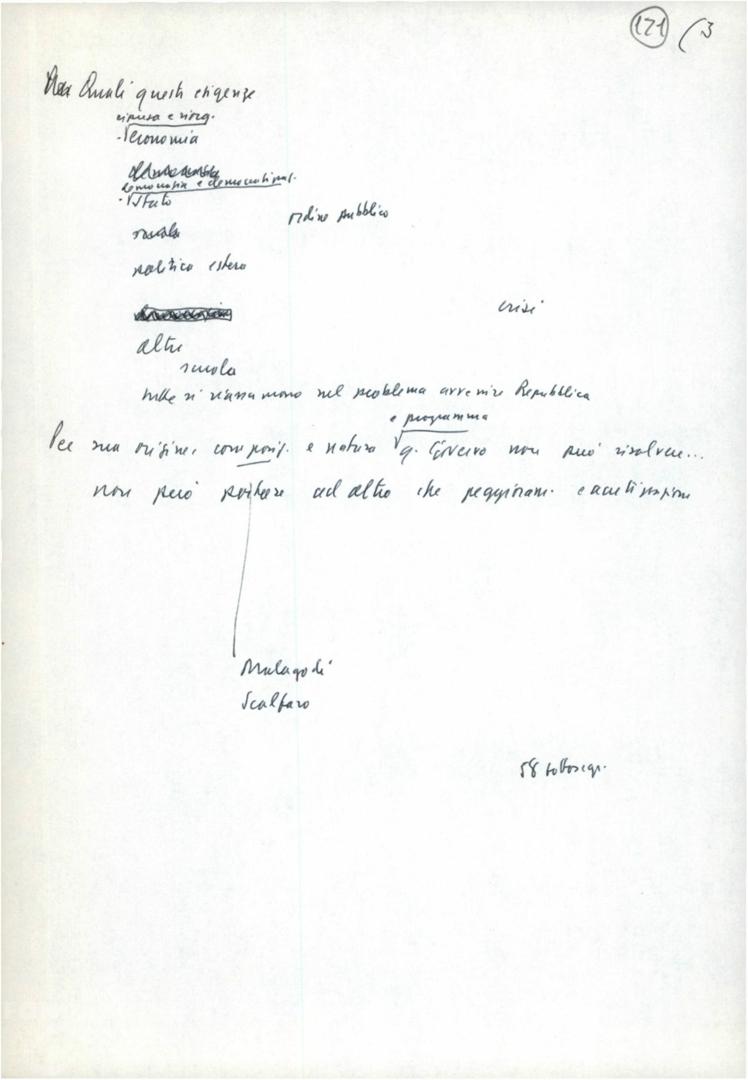 121 (3
Quali questi esigenze
ripresa e riorg.
- economia
democrazia e democratizzaz.
- Stato
ordine pubblico
scuola
politica estera
crisi
altre
scuola
tutte si riassumono nel problema avvenire Repubblica
e programma
Per sua origine, composiz. e natura q. Governo non può risolvere...
non può portare ad altro che peggioram. e acutizzazione
Malagodi
Scalfaro
58 sottosegr.